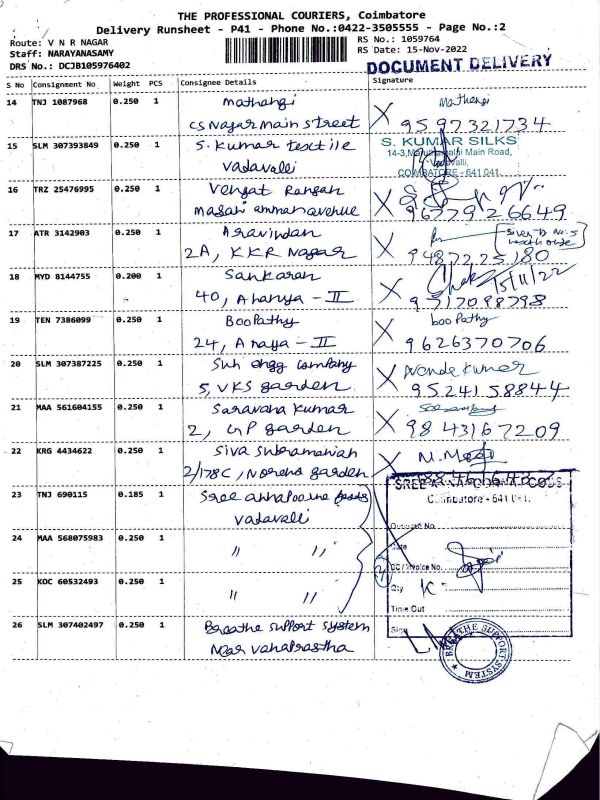 THE PROFESSIONAL COURIERS, Coimbatore
Delivery Runsheet - P41 - Phone No.:0422-3505555 - Page No.:2
Route: V N R NAGAR
RS No.: 1059764
Staff: NARAYANASAMY
RS Date: 15-Nov-2022
DRS No.: DCJB105976402
DOCUMENT DELIVERY
S No Consignment No Weight PCS Consignee Details Signature
14 TNJ 1087968 0.250 1 Mathangi Mathangi
CS Nagar main street X 9597321734
15 SLM 307393849 0.250 1 S. Kumar textile S. KUMAR SILKS
Vadavalli Main Road,
COIMBATORE - 641 041.
16 TRZ 25476995 0.250 1 Vengat Rangan
Masani amman avenue X 9677926649
17 ATR 3142903 0.250 1 Aravindan
2A, KKR Nagar X 9487225180
18 MYD 8144755 0.200 1 Sankaran 15/11/22
40, Ahanya - II X 9717098798
19 TEN 7386099 0.250 1 Boopathy boopathy
24, Anaya - II X 9626370706
20 SLM 307387225 0.250 1 Sun engg company
5, VKS garden X 9524158844
21 MAA 561604155 0.250 1 Saravana Kumar
2, GP garden X 9843167209
22 KRG 4434622 0.250 1 Siva Subramanian
2/178C, garden X
23 TNJ 690115 0.185 1 Sree annapoorna
Vadavalli
Coimbatore - 641 041.
24 MAA 568075983 0.250 1 " "
Date
25 KOC 60532493 0.250 1 " "
DC/Invoice No.
Qty
Time Out
26 SLM 307402497 0.250 1 Breathe support system
Sign
Near vanaprastha
BREATHE SUPPORT SYSTEM